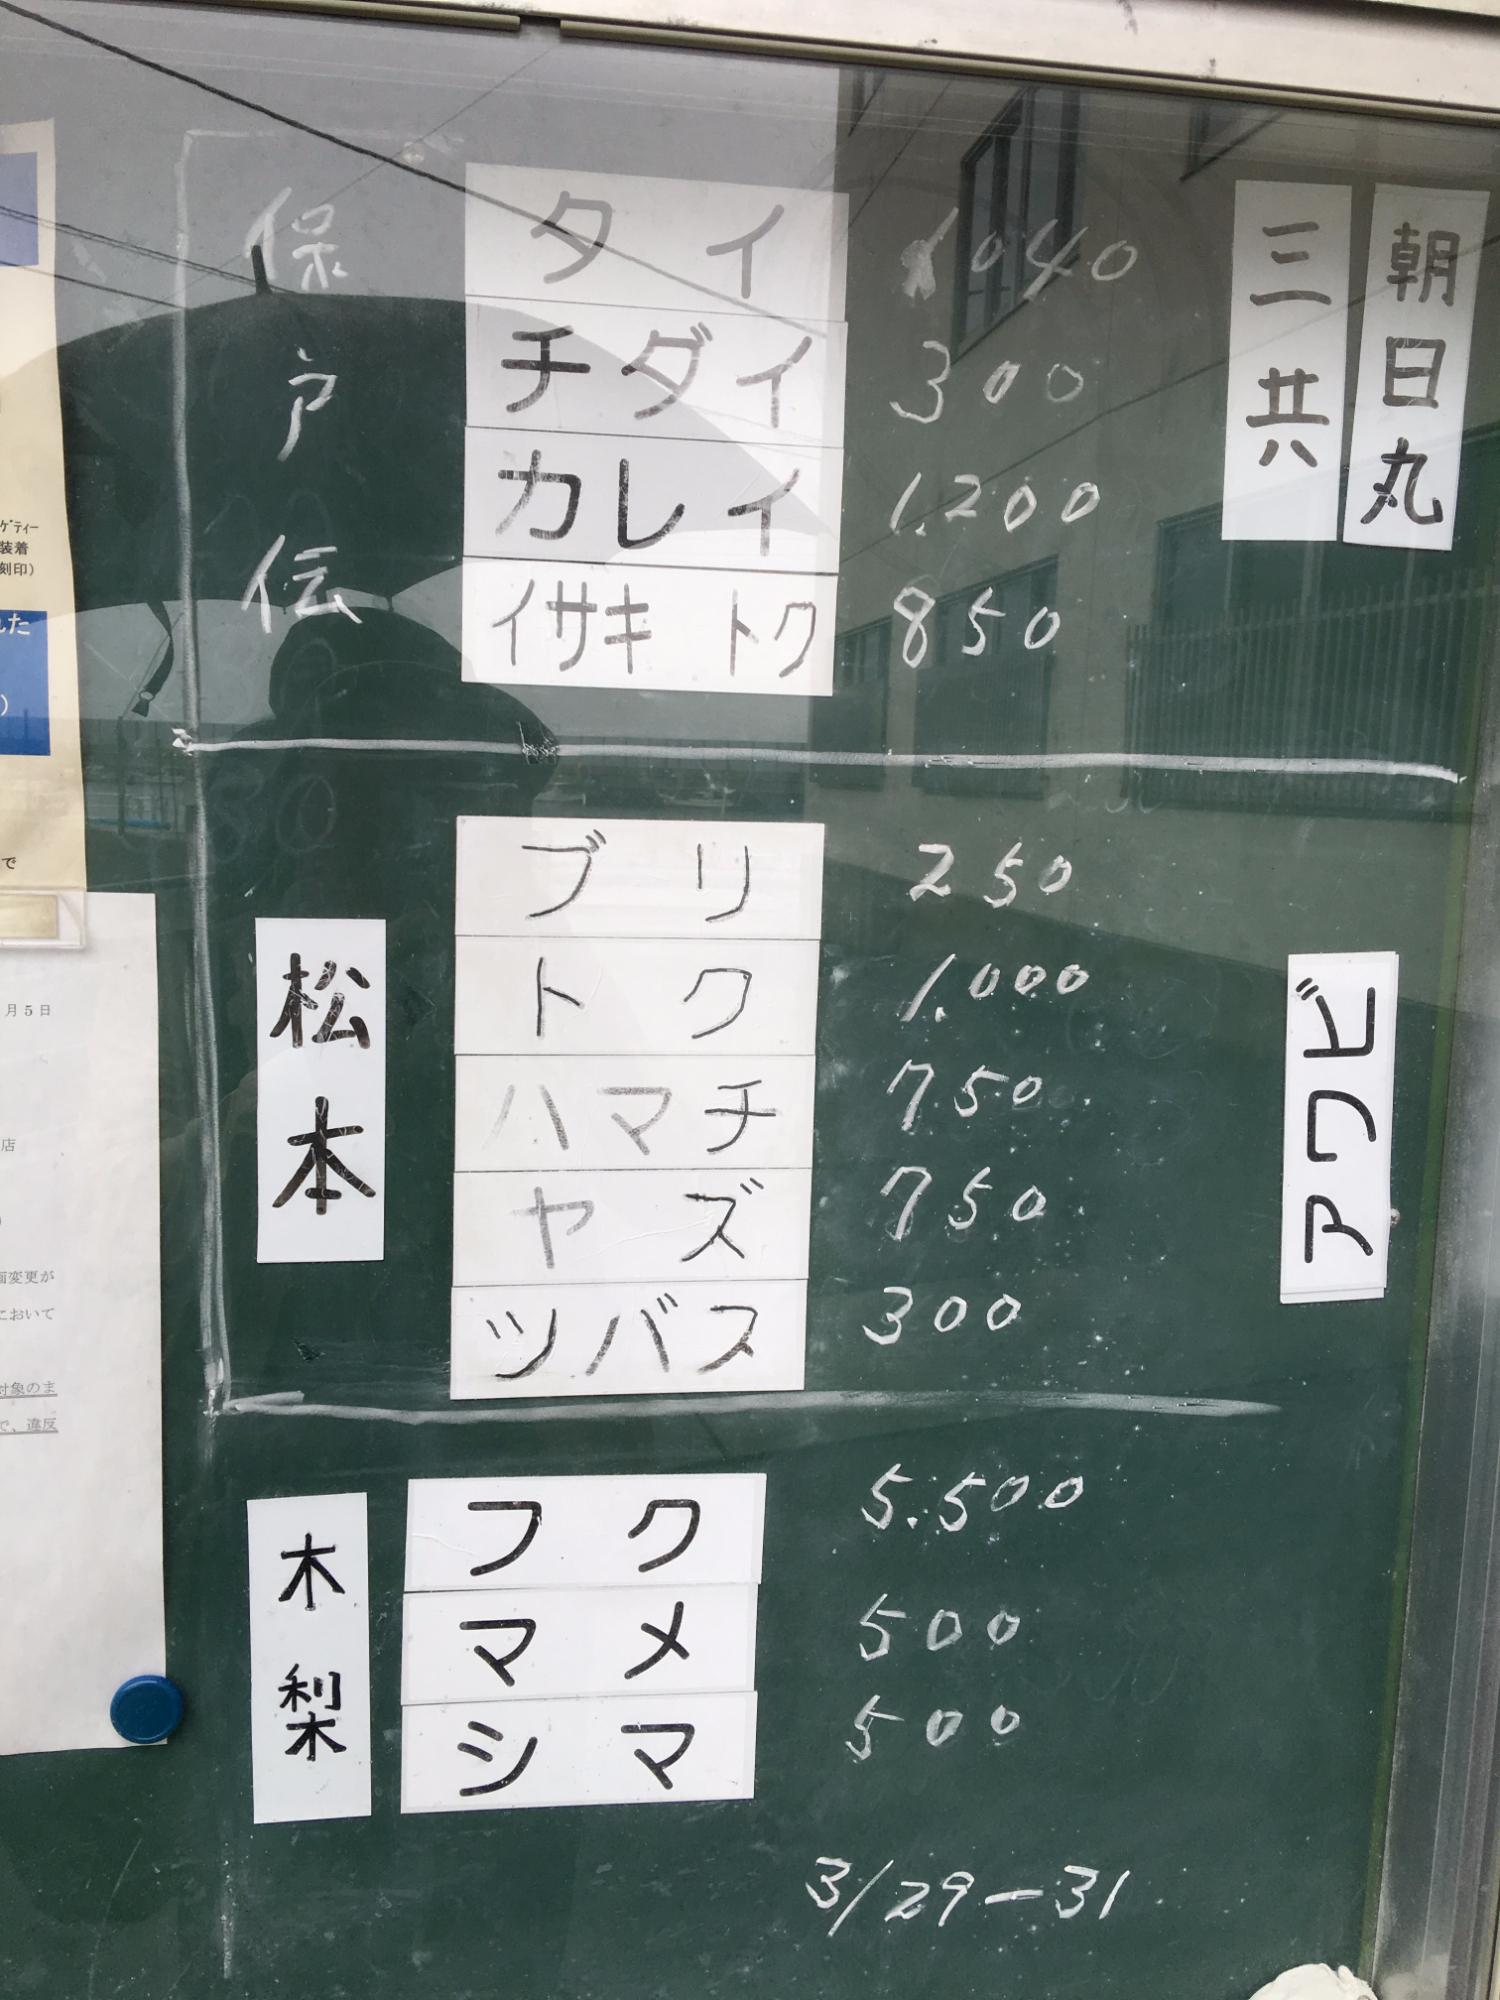 保戸伝
タイ 1040
チダイ 300
カレイ 1.200
イサキ トク 850
三共
朝日丸
松本
ブリ 250
トク 1.000
ハマチ 750
ヤズ 750
ツバス 300
アワビ
木梨
フク 5.500
マメ 500
シマ 500
3/29-31
ｹﾞﾃｨｰ
装着
刻印)
れた
)
で
月5日
店
)
画変更が
において
対象のま
で、違反